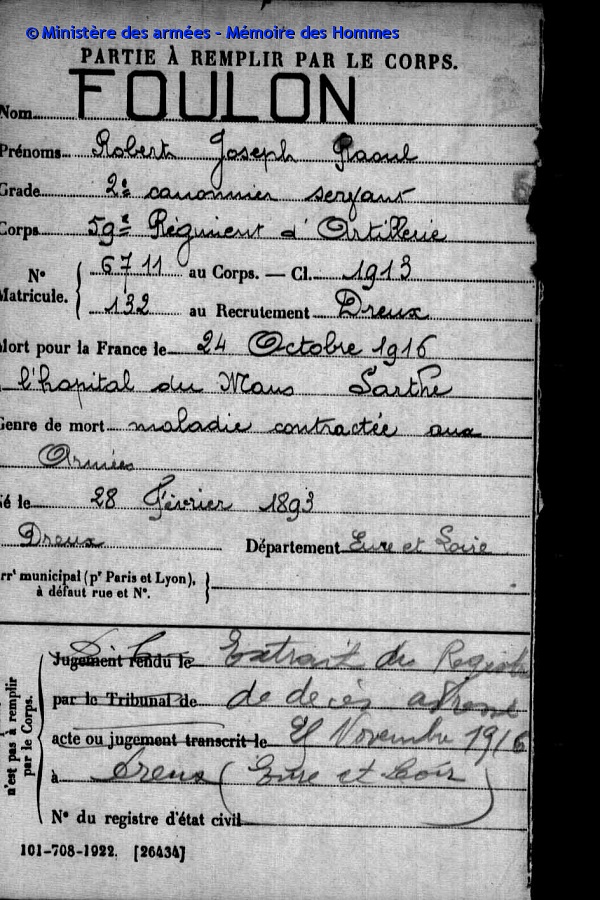 © Ministère des armées - Mémoire des Hommes
PARTIE À REMPLIR PAR LE CORPS.
Nom FOULON
Prénoms Robert Joseph Raoul
Grade 2e canonnier servant
Corps 59e Régiment d'Artillerie
N° Matricule. 6711 au Corps. — Cl. 1913
132 au Recrutement Dreux
Mort pour la France le 24 Octobre 1916
l'hopital du Mans Sarthe
Genre de mort maladie contractée aux
Armées
é le 28 Février 1893
Dreux Département Eure et Loire
rrt municipal (pr Paris et Lyon),
à défaut rue et N°.
n'est pas à remplir par le Corps.
Jugement rendu le Extrait du Regist
par le Tribunal de de décès adressé
acte ou jugement transcrit le Novembre 1916
à Dreux (Eure et Loir)
N° du registre d'état civil
101-708-1922. [26434]